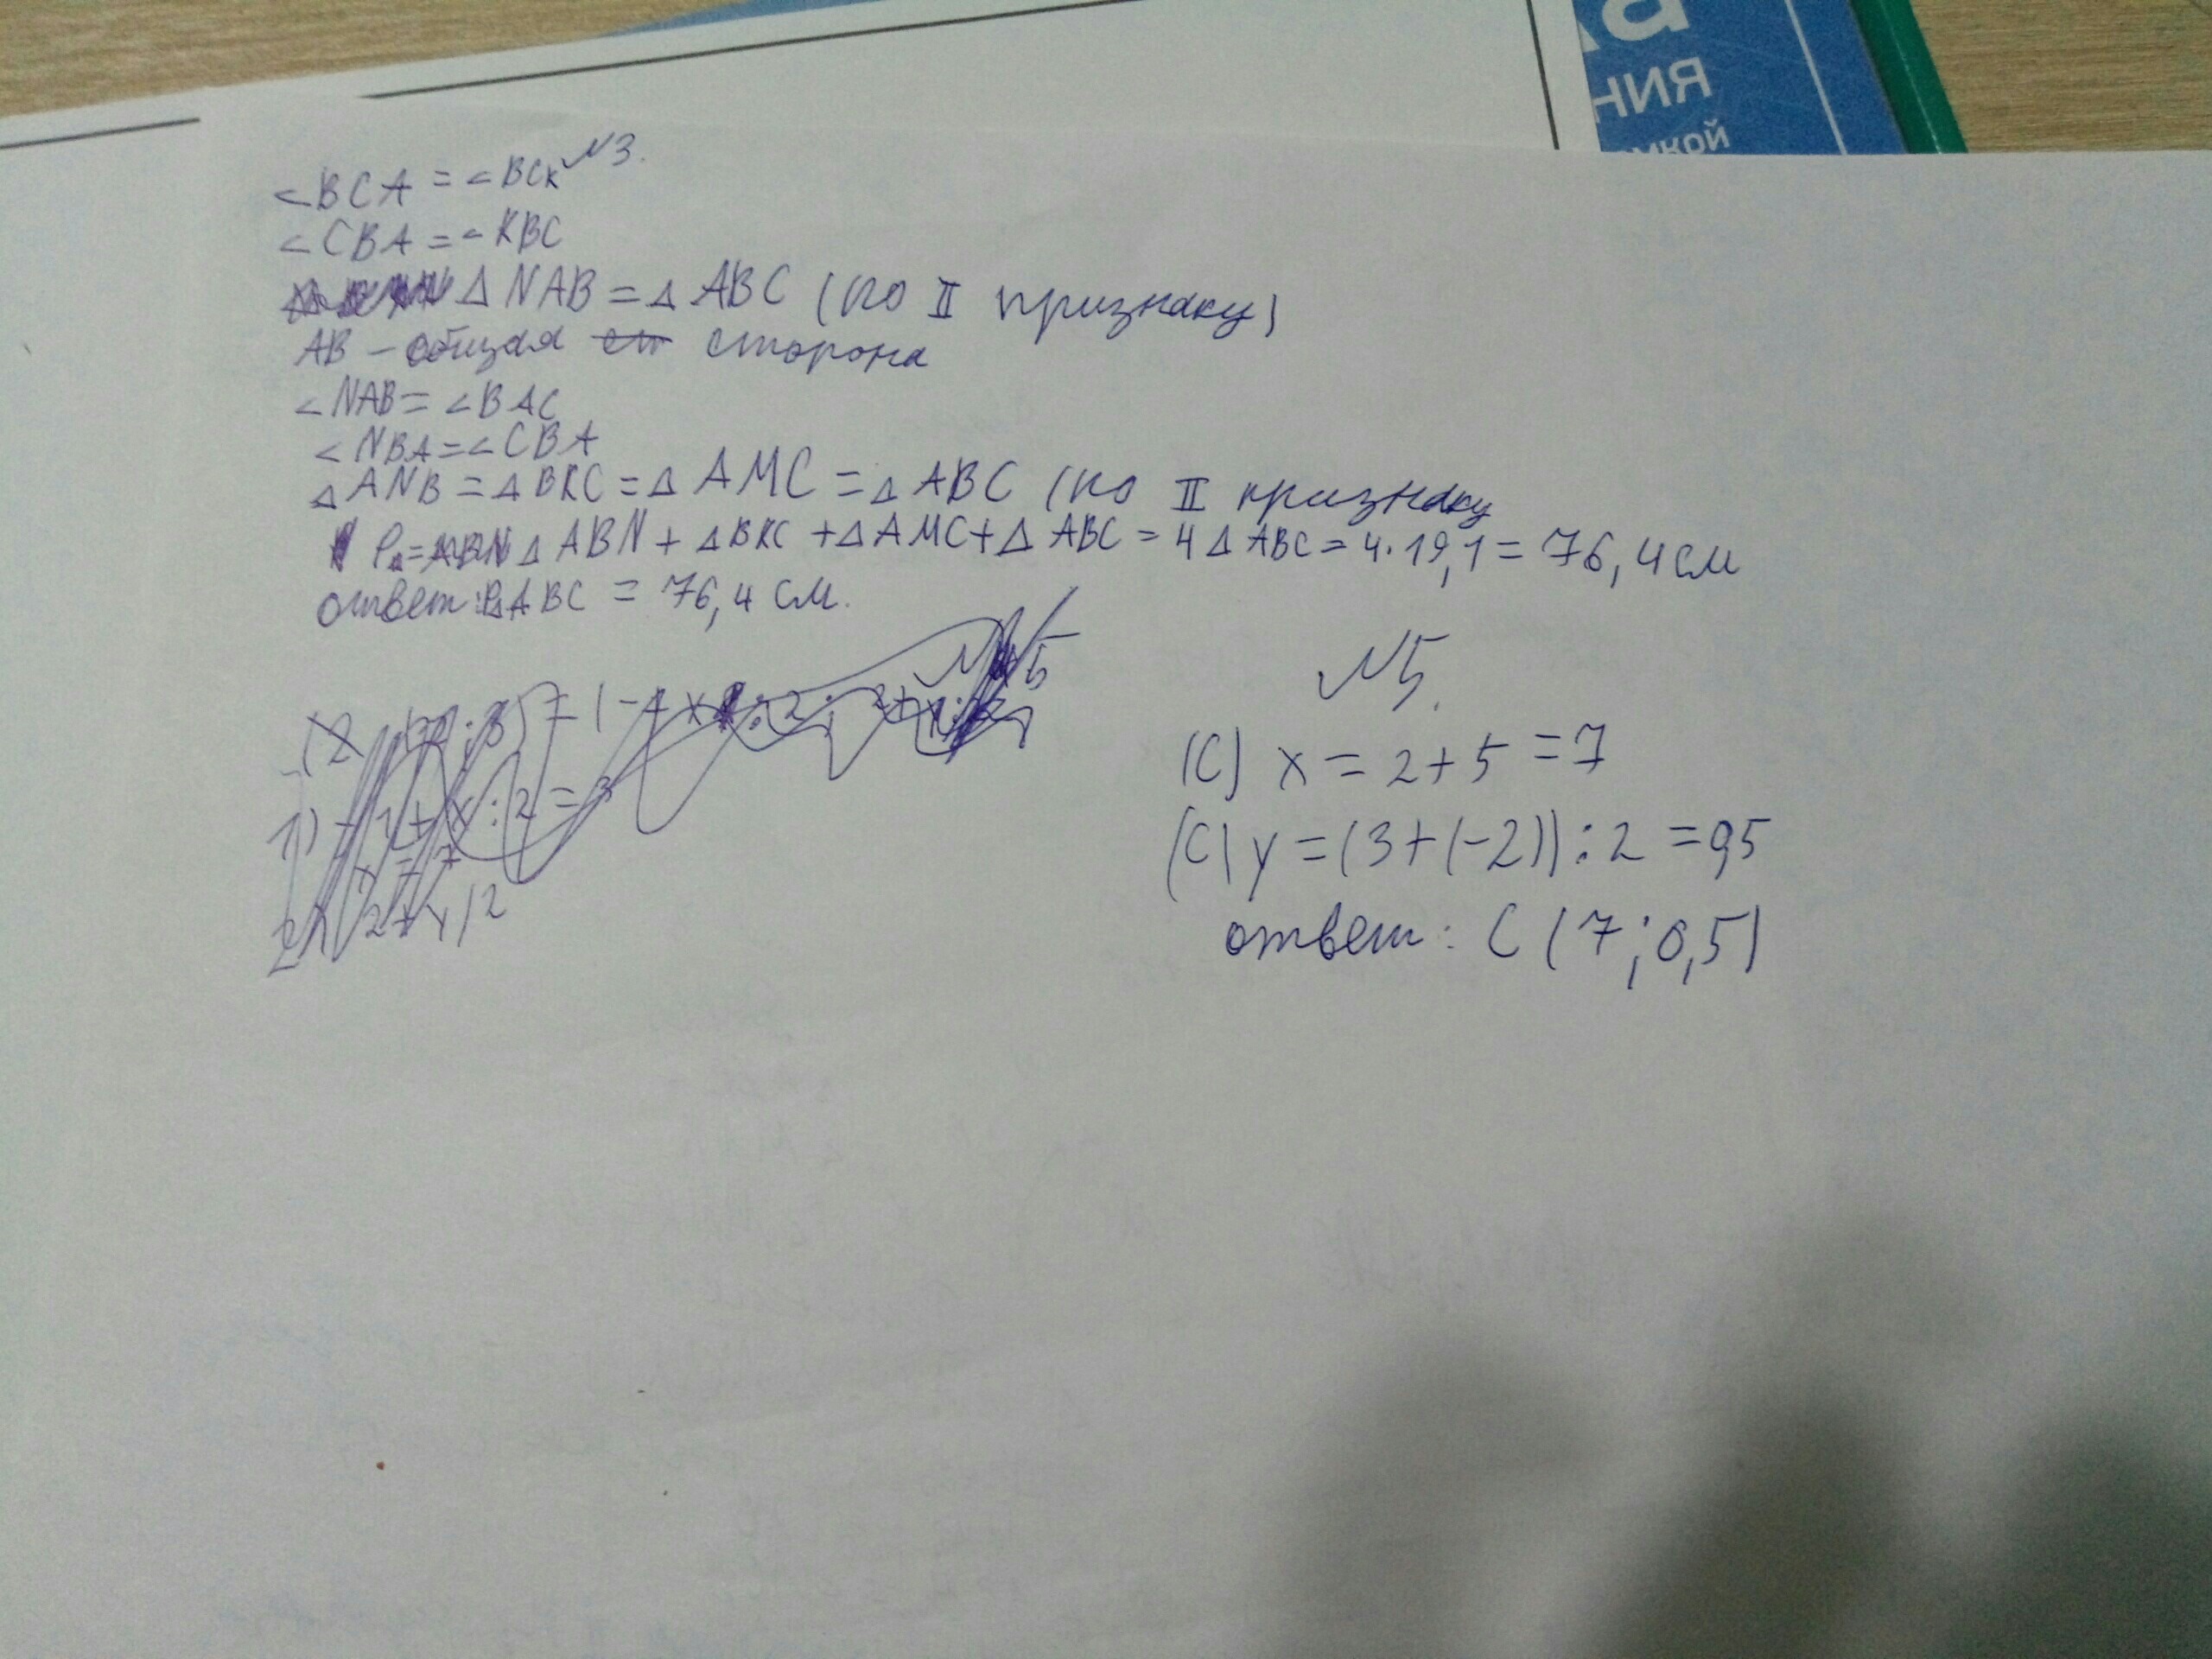 ла
НИЯ
мкой
№3.
∠BCA = ∠BCK
∠CBA = ∠KBC
△ NAB = △ ABC (по II признаку)
AB – общая сторона
∠NAB = ∠BAC
∠NBA = ∠CBA
△ANB = △BKC = △ AMC = △ ABC (по II признаку
P△ = △ ABN + △BKC + △AMC + △ ABC = 4 △ ABC = 4 · 19,1 = 76,4 см
ответ: P△ABC = 76,4 см.
№5.
(C) x = 2 + 5 = 7
(C) y = (3 + (-2)) : 2 = 0,5
ответ: C (7 ; 0,5)